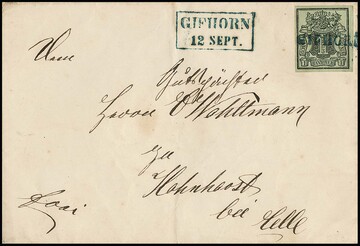 GIFHORN
12 SEPT.
GIFHORN
Dem
Gutspächter
Herrn Wohltmann
zu
Hohnhorst
bei Celle